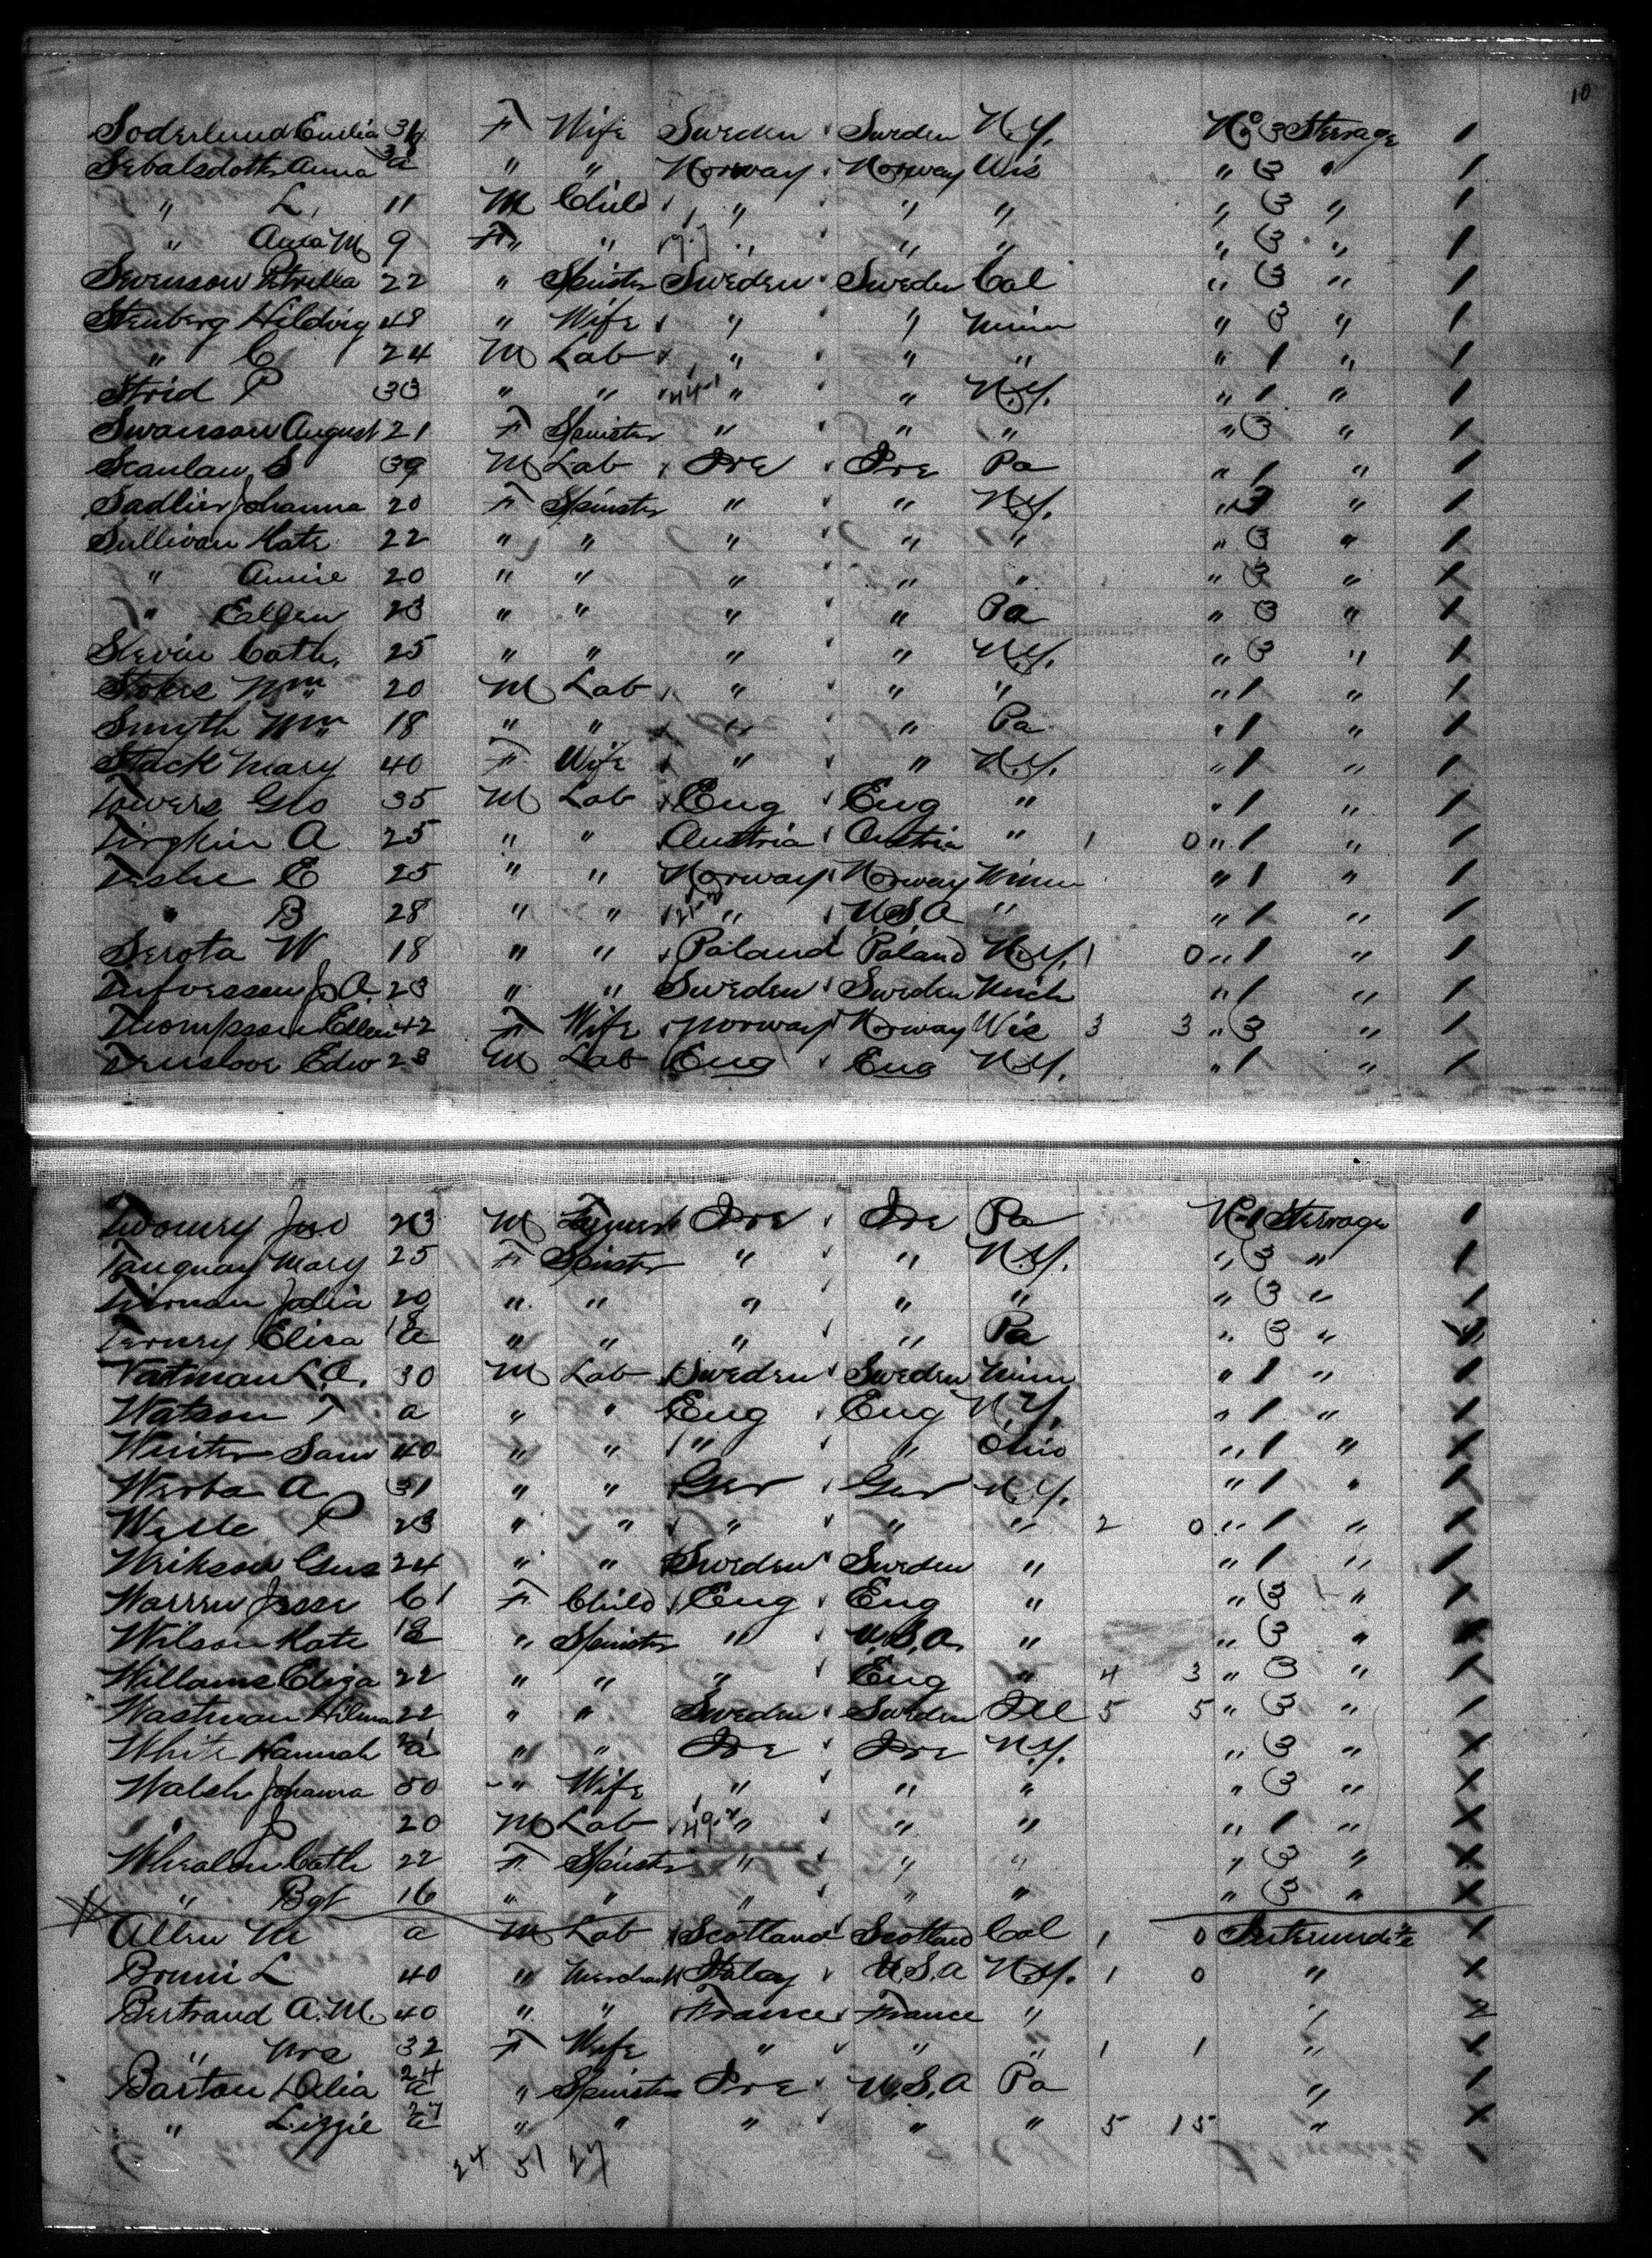 10
Soderlund Emelia 36 F Wife Sweden Sweden N.Y. No 3 Steerage 1
Sebalsdottr Anna a " " Norway Norway Wis " 3 " 1
" L. 11 M Child " " " " 3 " 1
" Anna M 9 F " " " " " 3 " 1
Swenson Petrilla 22 " Spinster Sweden Sweden Cal " 3 " 1
Stenberg Hildvig 48 " Wife " " Minn " 3 " 1
" C 24 M Lab " " " " 1 " 1
Strid P 33 " " " " N.Y. " 1 " 1
Swanson August 21 F Spinster " " " " 3 " 1
Scanlan S 39 M Lab Ire Ire Pa " 1 " 1
Sadlier Johanna 20 F Spinster " " N.Y. " 3 " 1
Sullivan Kate 22 " " " " " " 3 " 1
" Annie 20 " " " " " " 3 " 1
" Eallen 23 " " " " Pa " 3 " 1
Slevin Cath. 25 " " " " N.Y. " 3 " 1
Stokes Wm 20 M Lab " " " " 1 " 1
Smyth Wm 18 " " " " Pa " 1 " 1
Stack Mary 40 F Wife " " N.Y. " 1 " 1
Towers Geo 35 M Lab Eng Eng " " 1 " 1
A 25 " " Austria Austria " 1 0 " 1 " 1
E 25 " " Norway Norway Minn " 1 " 1
" B 28 " " " U.S.A " " 1 " 1
Serota W 18 " " Poland Poland N.Y. 1 0 " 1 " 1
J. A. 23 " " Sweden Sweden Mich " 1 " 1
Thompson Ellen 42 F Wife Norway Norway Wis 3 3 " 3 " 1
Truslove Edw 23 M Lab Eng Eng N.Y. " 1 " 1
Twomey Jno 23 M Ire Ire Pa No 1 Steerage 1
Tanguay Mary 25 F Spinster " " N.Y. " 3 " 1
Tiernan Julia 20 " " " " " " 3 " 1
Eliza 18 a " " " " Pa " 3 " 1
Vatman L.A. 30 M Lab Sweden Sweden Minn " 1 " 1
Watson T a " " Eng Eng N.Y. " 1 " 1
Winter Sam 40 " " " " Ohio " 1 " 1
Werba A 31 " " Ger Ger N.Y. " 1 " 1
Wille P 23 " " " " " 2 0 " 1 " 1
Wrikson Gus 24 " " Sweden Sweden " " 1 " 1
Warren Jesse 6 1 F Child Eng Eng " " 3 " 1
Wilson Kate 18 a " Spinster " U.S.A. " " 3 " 1
Willams Eliza 22 " " " Eng " 4 3 " 3 " 1
Wastman Hilma 22 " " Sweden Sweden Ill 5 5 " 3 " 1
White Hannah a " " Ire Ire N.Y. " 3 " 1
Walsh Johanna 50 " Wife " " " " 3 " 1
" P 20 M Lab " " " " 1 " 1
Whealon Cath 22 F Spinster " " " " 3 " 1
" Bgt 16 " " " " " " 3 " 1
Allen M a M Lab Scotland Scotland Cal 1 0 Intermediate 1
Bruni L 40 " Merchant Italy U.S.A N.Y. 1 0 " 1
Bertrand A.M. 40 " " France France " " 2
" Mrs 32 F Wife " " " 1 1 " 1
Barton Delia 24 a " Spinster Ire U.S.A Pa " 1
" Lizzie 27 a " " " " " 5 15 " 1
24 51 27